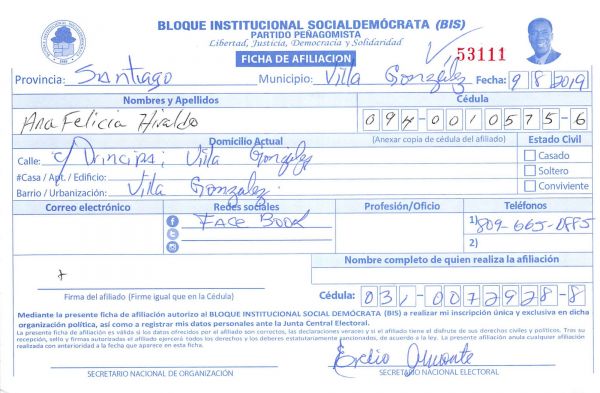 BLOQUE INSTITUCIONAL SOCIALDEMÓCRATA (BIS)
PARTIDO PEÑAGOMISTA
Libertad, Justicia, Democracia y Solidaridad
FICHA DE AFILIACION
53111
Provincia: Santiago Municipio: Villa González Fecha: 9/8/2019
Nombres y Apellidos Cédula
Ana Felicia Hiraldo 094-0010575-6
Domicilio Actual (Anexar copia de cédula del afiliado) Estado Civil
Calle: c/ Principi; Villa González Casado
#Casa / Apt. / Edificio: Soltero
Barrio / Urbanización: Villa Gonzalez. Conviviente
Correo electrónico Redes sociales Profesión/Oficio Teléfonos
FACE BOOK 1) 809-665-
2)
Nombre completo de quien realiza la afiliación
Firma del afiliado (Firme igual que en la Cédula) Cédula: 031-0072928-8
Mediante la presente ficha de afiliación autorizo al BLOQUE INSTITUCIONAL SOCIAL DEMÓCRATA (BIS) a realizar mi inscripción única y exclusiva en dicha
organización política, así como a registrar mis datos personales ante la Junta Central Electoral.
La presente ficha de afiliación es válida si los datos ofrecidos por el afiliado son correctos, las declaraciones veraces y si el afiliado tiene el disfrute de sus derechos civiles y políticos. Tras su
recepción, sello y firmas autorizadas el afiliado ejercerá todos los derechos y los deberes estatutariamente sancionados, de acuerdo a la ley. La presente afiliación anula cualquier afiliación
realizada con anterioridad a la fecha que aparece en esta ficha.
SECRETARIO NACIONAL DE ORGANIZACIÓN SECRETARIO NACIONAL ELECTORAL